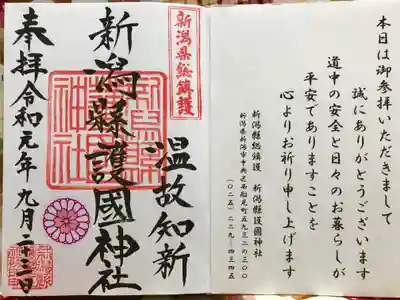 本日は御参拝いただきまして
誠にありがとうございます
道中の安全と日々のお暮らしが
平安でありますことを
心よりお祈り申し上げます
新潟縣総鎮護 新潟縣護國神社
新潟県新潟市中央区西船見町五九三二の三〇〇
(〇二五)二二九―四三四五
新潟県総鎮護
温故知新
新潟縣護國神社
奉拝令和元年九月二十三日